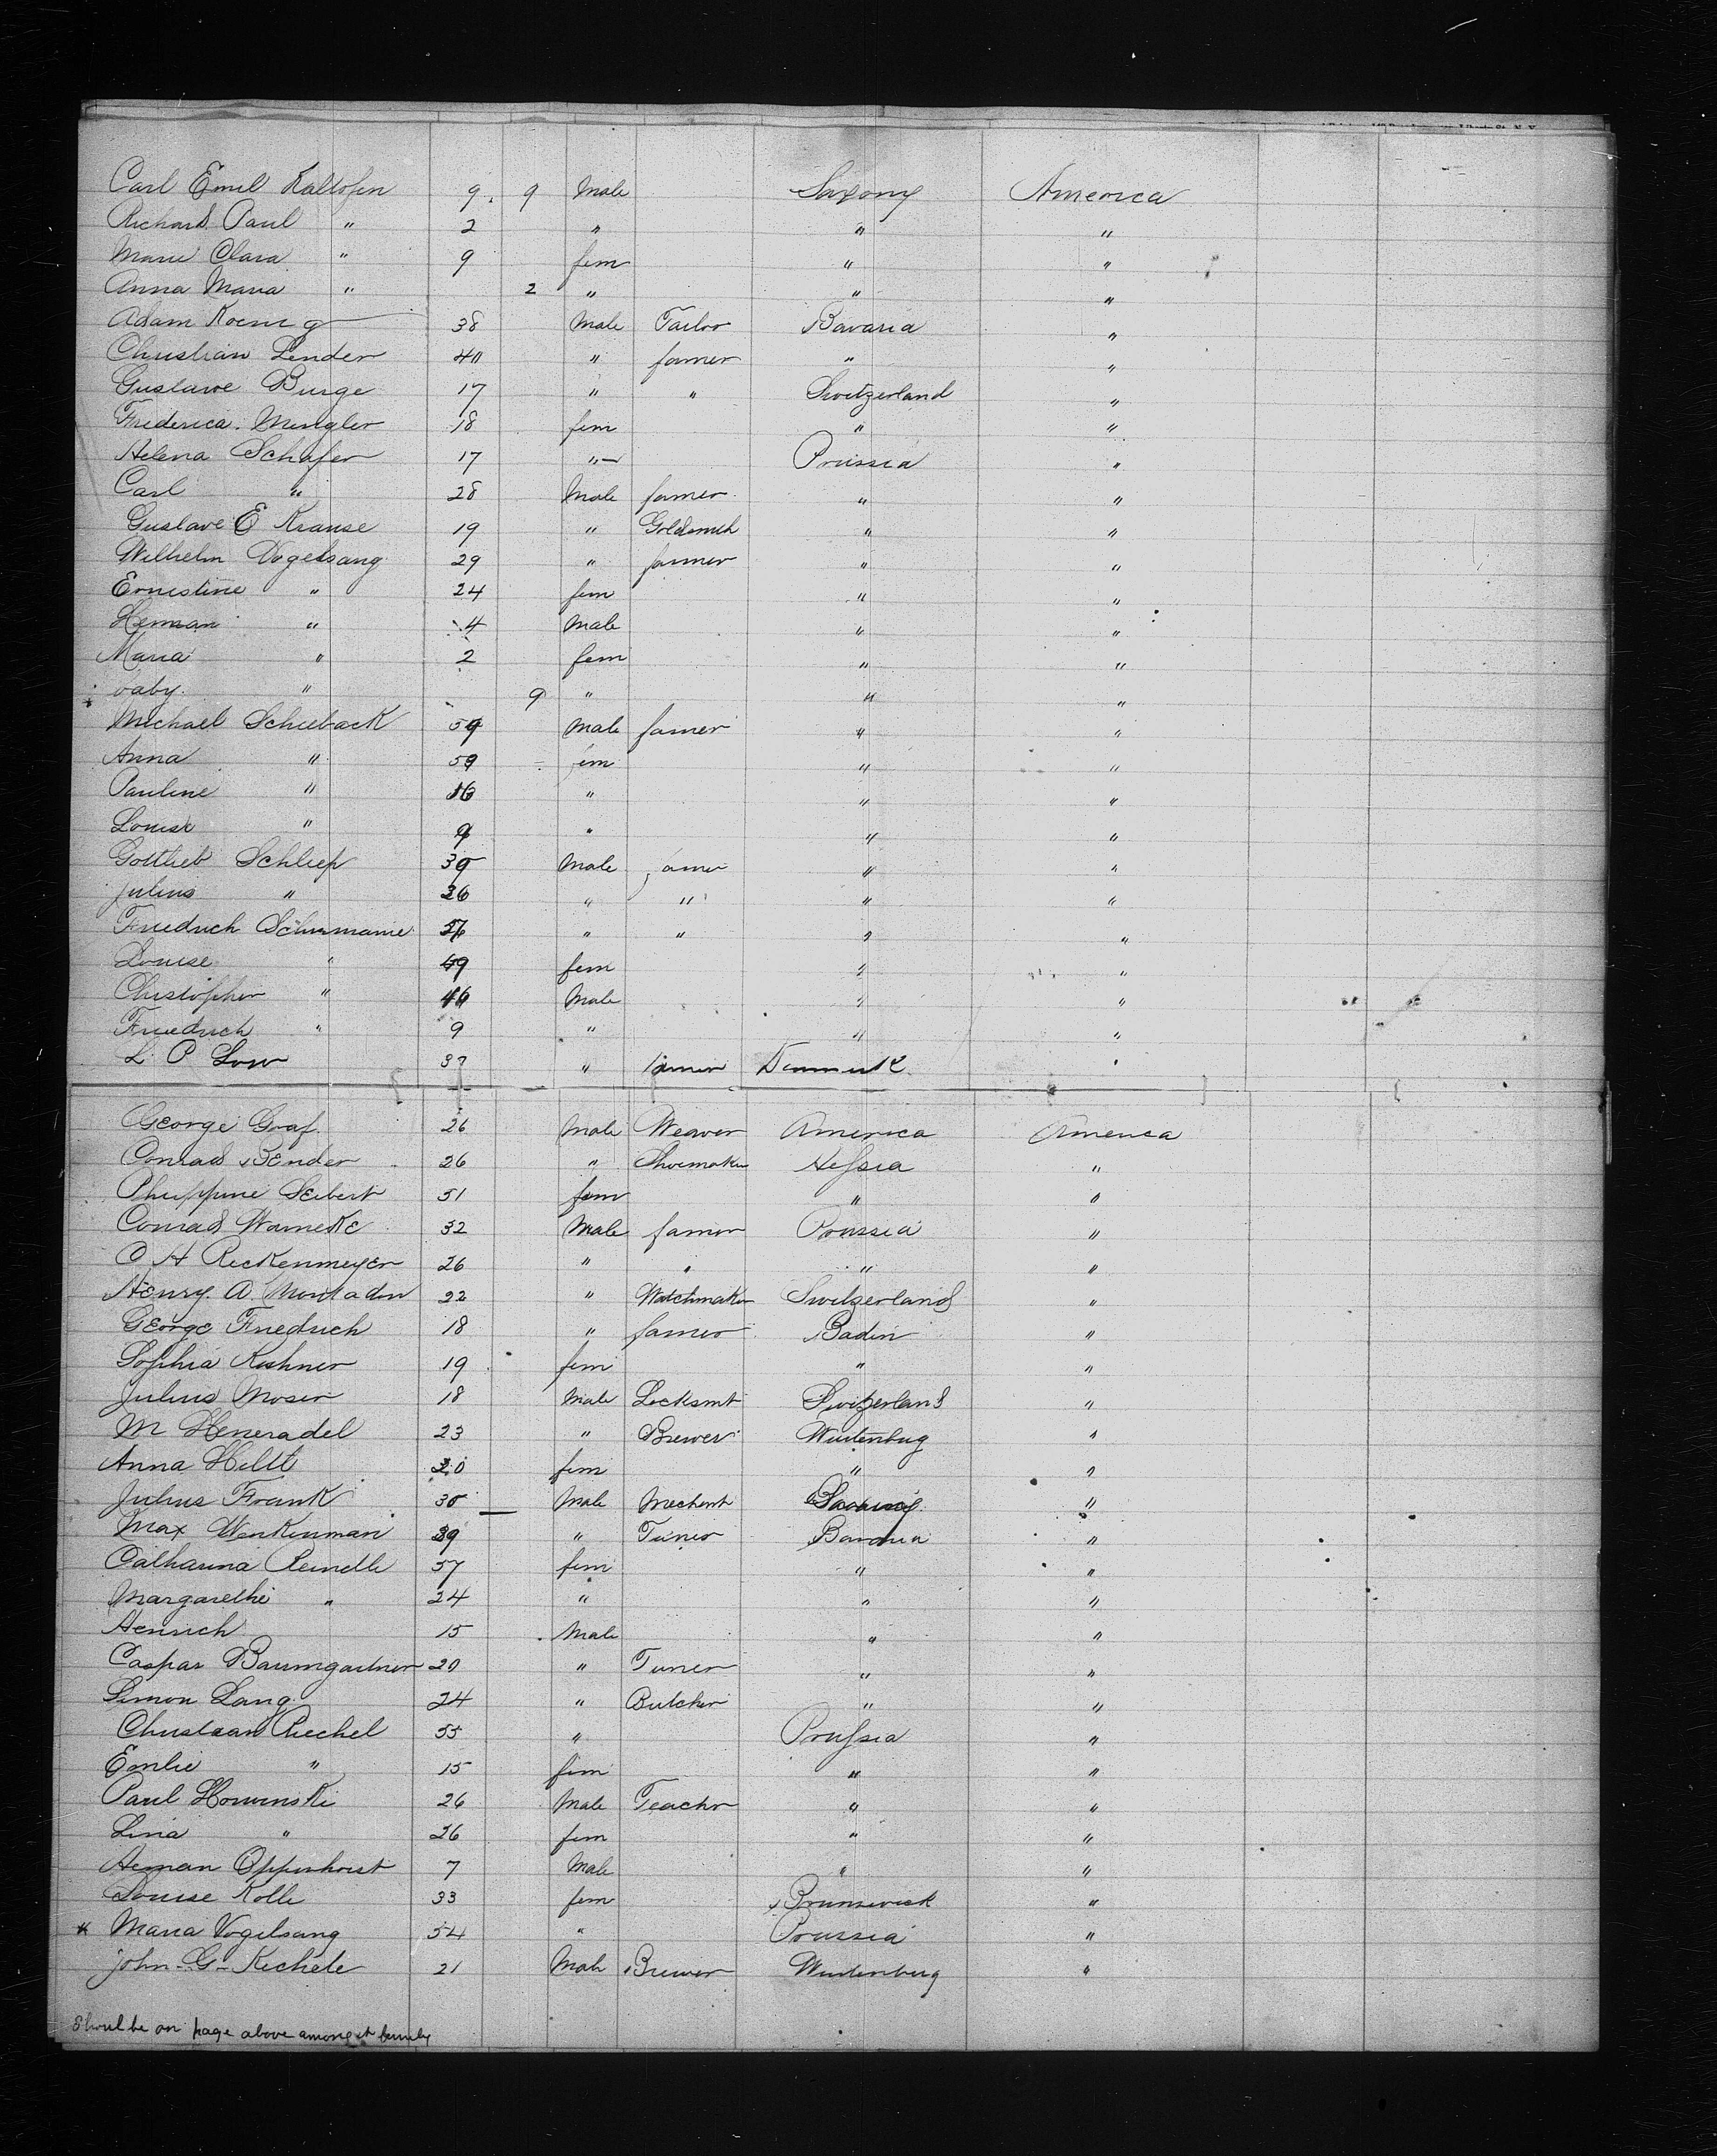 Carl Emil Kaltofen 9. 9 Male Saxony America
Richard Paul " 2 " " "
Marie Clara " 9 fem " "
Anna Maria " 2 " " "
Adam Koenig 38 Male Tailor Bavaria "
Christian Lender 40 " farmer " "
Gustave Burge 17 " " Switzerland "
Frederica Mengler 18 fem " "
Helena Schafer 17 " Prussia "
Carl " 28 Male farmer " "
Gustave E Krause 19 " Goldsmith " "
Wilhelm Vogelsang 29 " farmer " "
Ernestine " 24 fem " "
Herman " 4 Male " "
Maria " 2 fem " "
baby " 9 " " "
Michael Schieback 59 Male farmer " "
Anna " 59 fem " "
Pauline " 16 " " "
Louise " 9 " " "
Gottlieb Schliep 39 Male farmer " "
Julius " 26 " " " "
Friedrich Schurmanne " " " "
Louise " 49 fem " "
Christopher " 16 Male " "
Friedrich " 9 " " "
L. P Low " farmer Denmark "
George Graf 26 Male Weaver America America
Conrad Bender 26 " Shoemaker Hessia "
Phillppine Seibert 51 fem " "
Conrad Warneke 32 Male farmer Prussia "
C H Reckenmeyer 26 " " " "
Henry A. Montadon 22 " Watchmaker Switzerland "
George Friedrich 18 " farmer Baden "
Sophia Kushner 19 fem " "
Julius Moser 18 Male Locksmt Switzerland "
M Heneradel 23 " Brewer Wurtenbug "
Anna Hiltt 20 fem " "
Julius Frank 30 Male Mechent "
Max Wenkenman 39 " Turner Bavaria "
Catharina Reindle 57 fem " "
Margarethe " 24 " " "
Henrich 15 Male " "
Caspar Baumgartner 20 " Turner " "
Simon Lang 24 " Butcher " "
Christiaan Riechel 55 " Prussia "
Emlie " 15 fem " "
Paul Howinski 26 Male Teacher " "
Lina " 26 fem " "
Herman Oppenhorst 7 Male " "
Louise Kolle 33 fem Brunswick "
* Maria Vogelsang 54 " Prussia "
John G Kechele 21 Male Brewer Wurtenburg "
Shoul be on page above amongst family